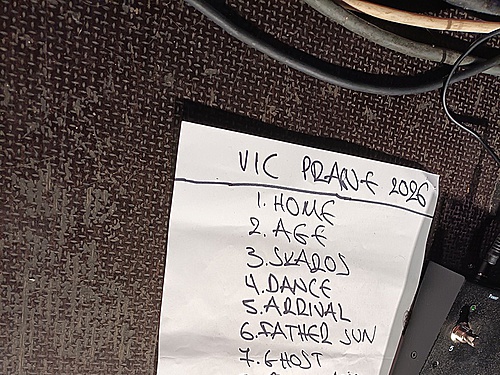 VIC PRANE 2026
1. HOME
2. AGE
3. SKAROS
4. DANCE
5. ARRIVAL
6. FATHER SUN
7. GHOST